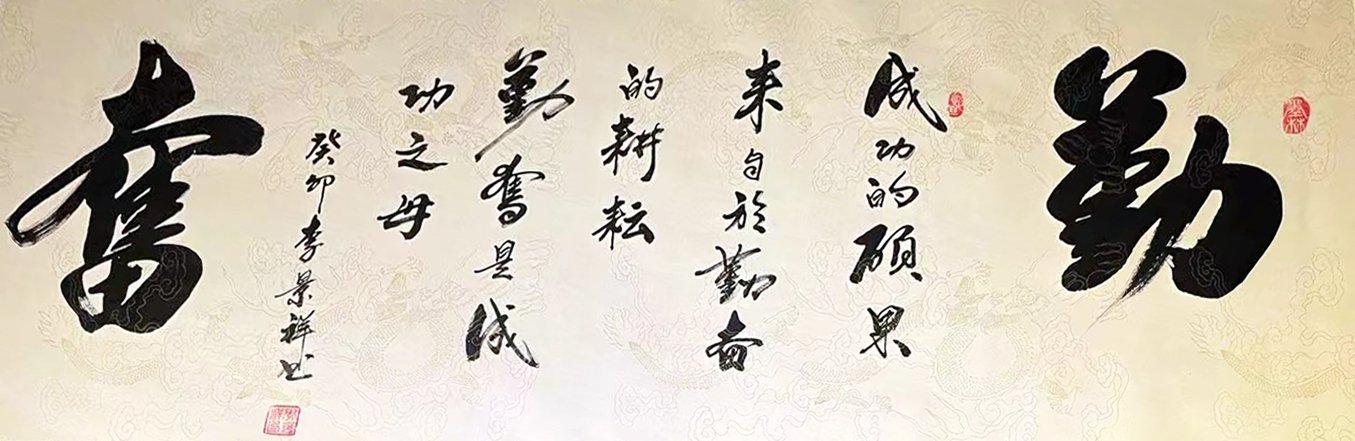 勤
成功的硕果
来自於勤奋
的耕耘
勤奮是成
功之母
癸卯李景祥书
奮